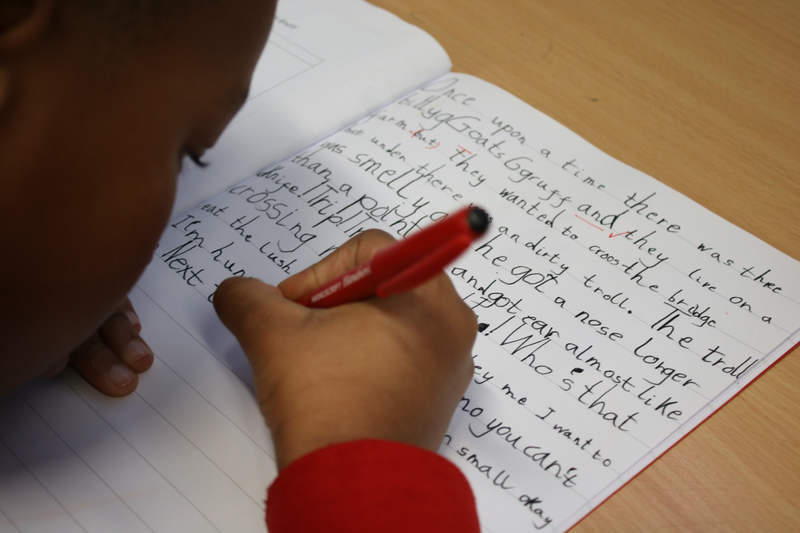 Once upon a time there was three
billyg Goats Ggruff and they live on a
farm. but) They wanted to cross the bridge
but under there an dirty troll. The troll
was smelly he got a nose longer
than a and got ear almost like
knife. ! Who's that
crossing me I want to
eat the lush no you can't
I'm small okay
Next